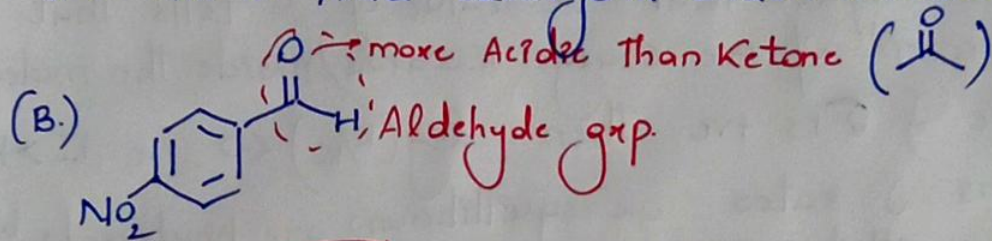 O → more Acidic Than Ketone ( O )
(B.)
H, Aldehyde grp.
NO2